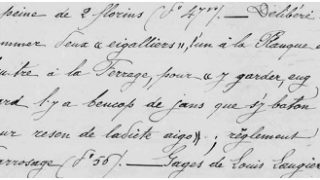 peine de 2 florins (fº 47vº). — Délibéré
ommer deux « eigalliers », l'un à la Ranque
utre à la Ferrage, pour « y garder, eug
ard l y a beucop de jans que s'y baton
ur reson de ladicte aigo » ; règlement
arrosage (fº 56). — Gages de Louis Laugier